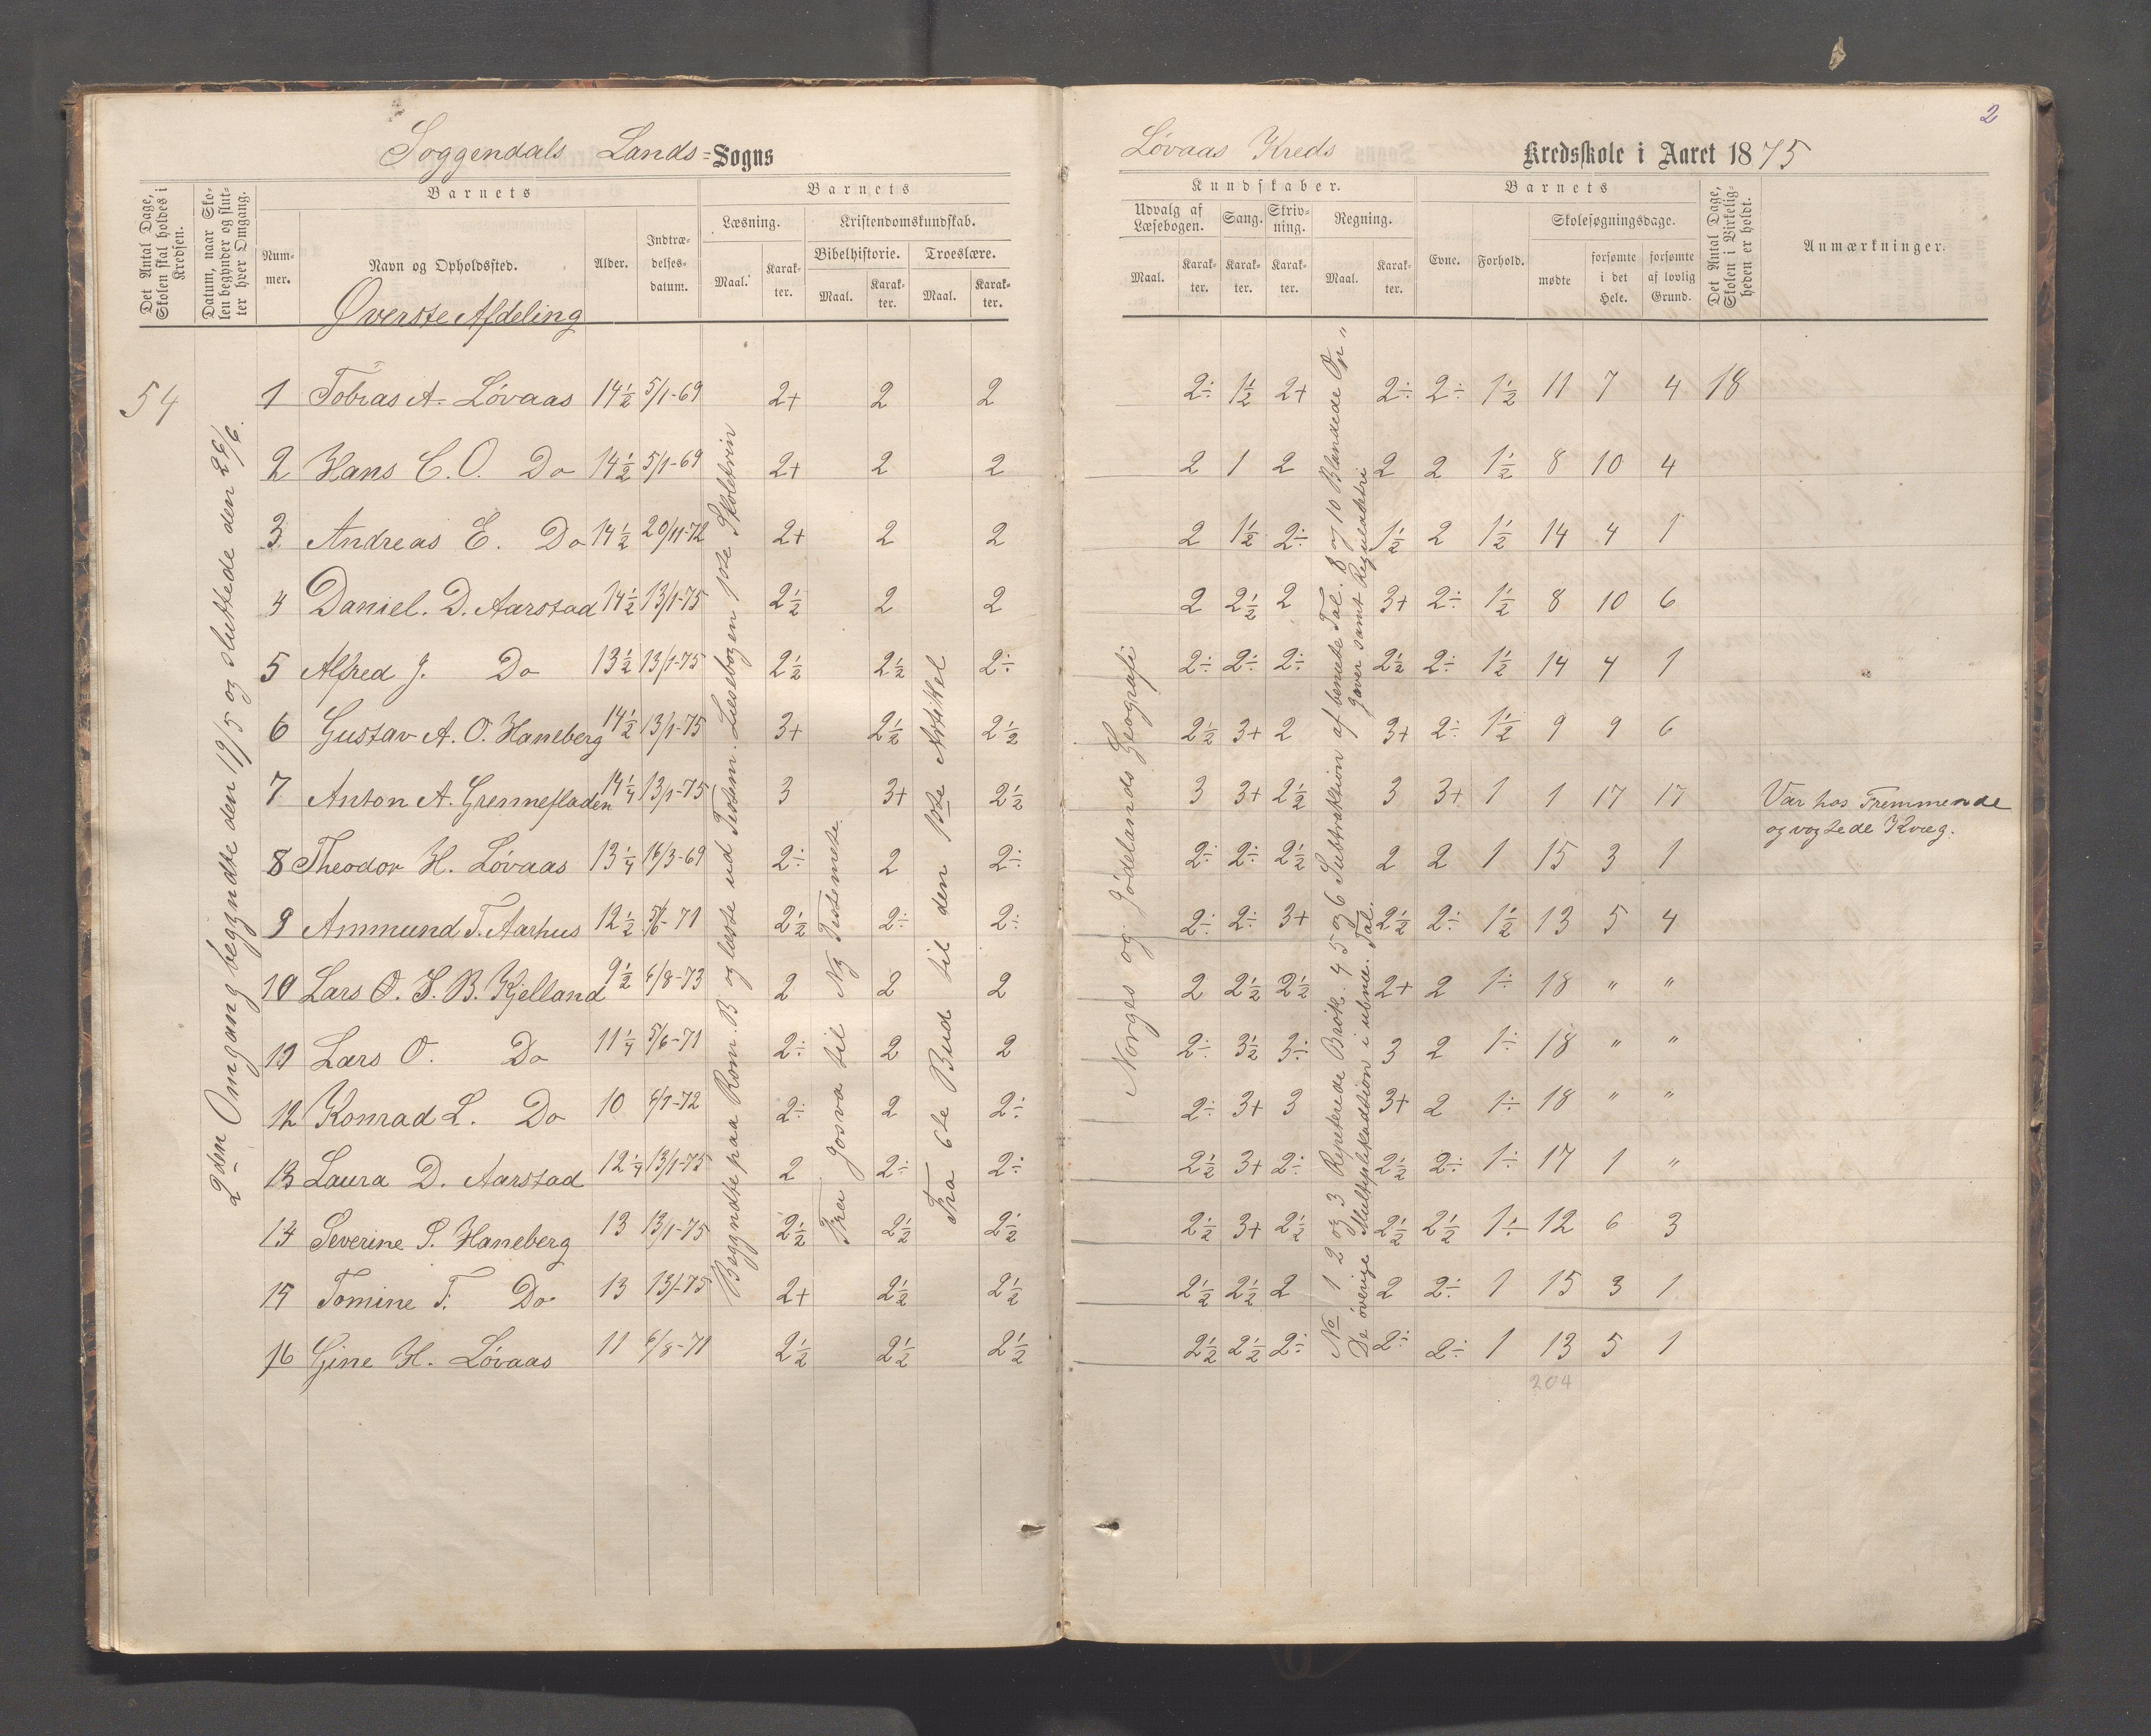 2
Soggendals Lands=Sogns
Løvaas Kreds Kredsskole i Aaret 1875
Det Antal Dage, Skolen skal holdes i Kredsen.
Datum, naar Skolen begynder og slutter hver Omgang.
Barnets
Nummer.
Navn og Opholdssted.
Alder.
Indtrædelsesdatum.
Barnets
Læsning.
Maal.
Karakter.
Kristendomskundskab.
Bibelhistorie.
Maal.
Karakter.
Troeslære.
Maal.
Karakter.
Kundskaber.
Udvalg af Læsebogen.
Maal.
Karakter.
Sang.
Karakter.
Skrivning.
Karakter.
Regning.
Maal.
Karakter.
Barnets
Evne.
Forhold.
Skolesøgningsdage.
mødte
forsømte i det Hele.
forsømte af lovlig Grund.
Det Antal Dage, Skolen i Virkeligheden er holdt.
Anmærkninger.
Øverste Afdeling
54 1 Tobias A. Løvaas 14½ 5/1-69 2+ 2 2 2÷ 1½ 2+ 2÷ 2÷ 1½ 11 7 4 18
2 Hans C. O. Do 14½ 5/1-69 2+ 2 2 2 1 2 2 2 1½ 8 10 4
3 Andreas E. Do 14½ 20/11-72 2+ 2 2 2 1½ 2÷ 1½ 2 1½ 14 4 1
4 Daniel. D. Aarstad 14½ 13/1-75 2½ 2 2 2 2½ 2 3+ 2÷ 1½ 8 10 6
5 Alfred J. Do 13½ 13/1-75 2½ 2½ 2÷ 2÷ 2÷ 2÷ 2½ 2÷ 1½ 14 4 1
6 Gustav A. O. Haneberg 14½ 13/1-75 3+ 2½ 2½ 2½ 3+ 2 3+ 2÷ 1½ 9 9 6
7 Anton A. Grennefladen 14¼ 13/1-75 3 3+ 2½ 3 3+ 2½ 3 3+ 1 1 17 17 Var hos Fremmende
og vogtede Kvæg.
8 Theodor H. Løvaas 13¼ 16/3-69 2÷ 2 2÷ 2÷ 2÷ 2½ 2 2 1 15 3 1
9 Ammund T. Aarhus 12½ 5/6-71 2½ 2÷ 2÷ 2÷ 2÷ 3+ 2½ 2÷ 1½ 13 5 4
10 Lars O. S. B. Kjelland 9½ 6/8-73 2 2 2 2 2½ 2½ 2+ 2 1÷ 18 " "
11 Lars O. Do 11¼ 5/6-71 2÷ 2 2 2÷ 3½ 3÷ 3 2 1÷ 18 " "
12 Konrad L. Do 10 6/1-72 2÷ 2 2÷ 2÷ 3+ 3 3+ 2 1÷ 18 " "
13 Laura D. Aarstad 12¼ 13/1-75 2 2÷ 2÷ 2½ 3+ 2÷ 2½ 2÷ 1÷ 17 1 "
14 Severine S. Haneberg 13 13/1-75 2½ 2½ 2½ 2½ 3+ 2½ 2½ 2½ 1÷ 12 6 3
15 Tomine T. Do 13 13/1-75 2+ 2½ 2½ 2½ 2½ 2 2 2÷ 1 15 3 1
16 Gine H. Løvaas 11 6/8-71 2½ 2½ 2½ 2½ 2½ 2÷ 2÷ 2÷ 1 13 5 1
204
2den Omgang begyndte den 19/5 og sluttede den 26/6.
Begyndte paa Rom. B og læste ud Testam. Læsebogen 1ste Skoletrin
Fra Josva til Ny Testemete.
Fra 6te Bud til den 1ste Artikel
Norges og Jødelands Geografi
No 1 2 og 3 Repeterede Brøk. 4 5 og 6 Subtraktion af benevte Tal. 8 og 10 Blandede Op„
De øvrige Multiplikadtion i ubne. Tal. gaver samt Reguladetri